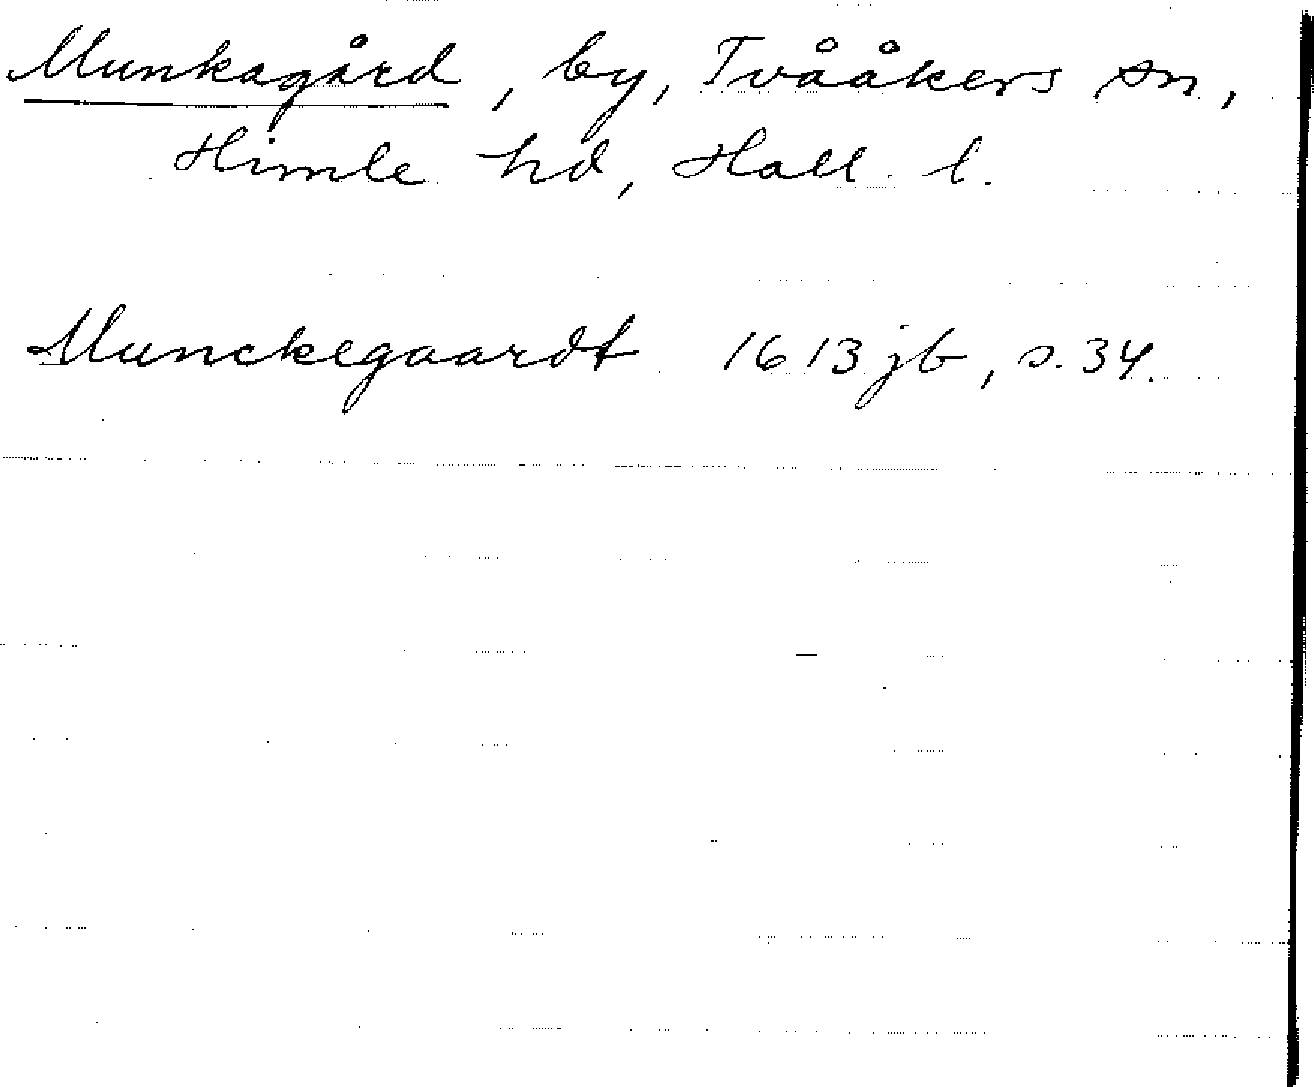 Munkagård, by, Tvååkers sn,
Himle hd, Hall. l.
Munckegaardt 1613 jb, s. 34.